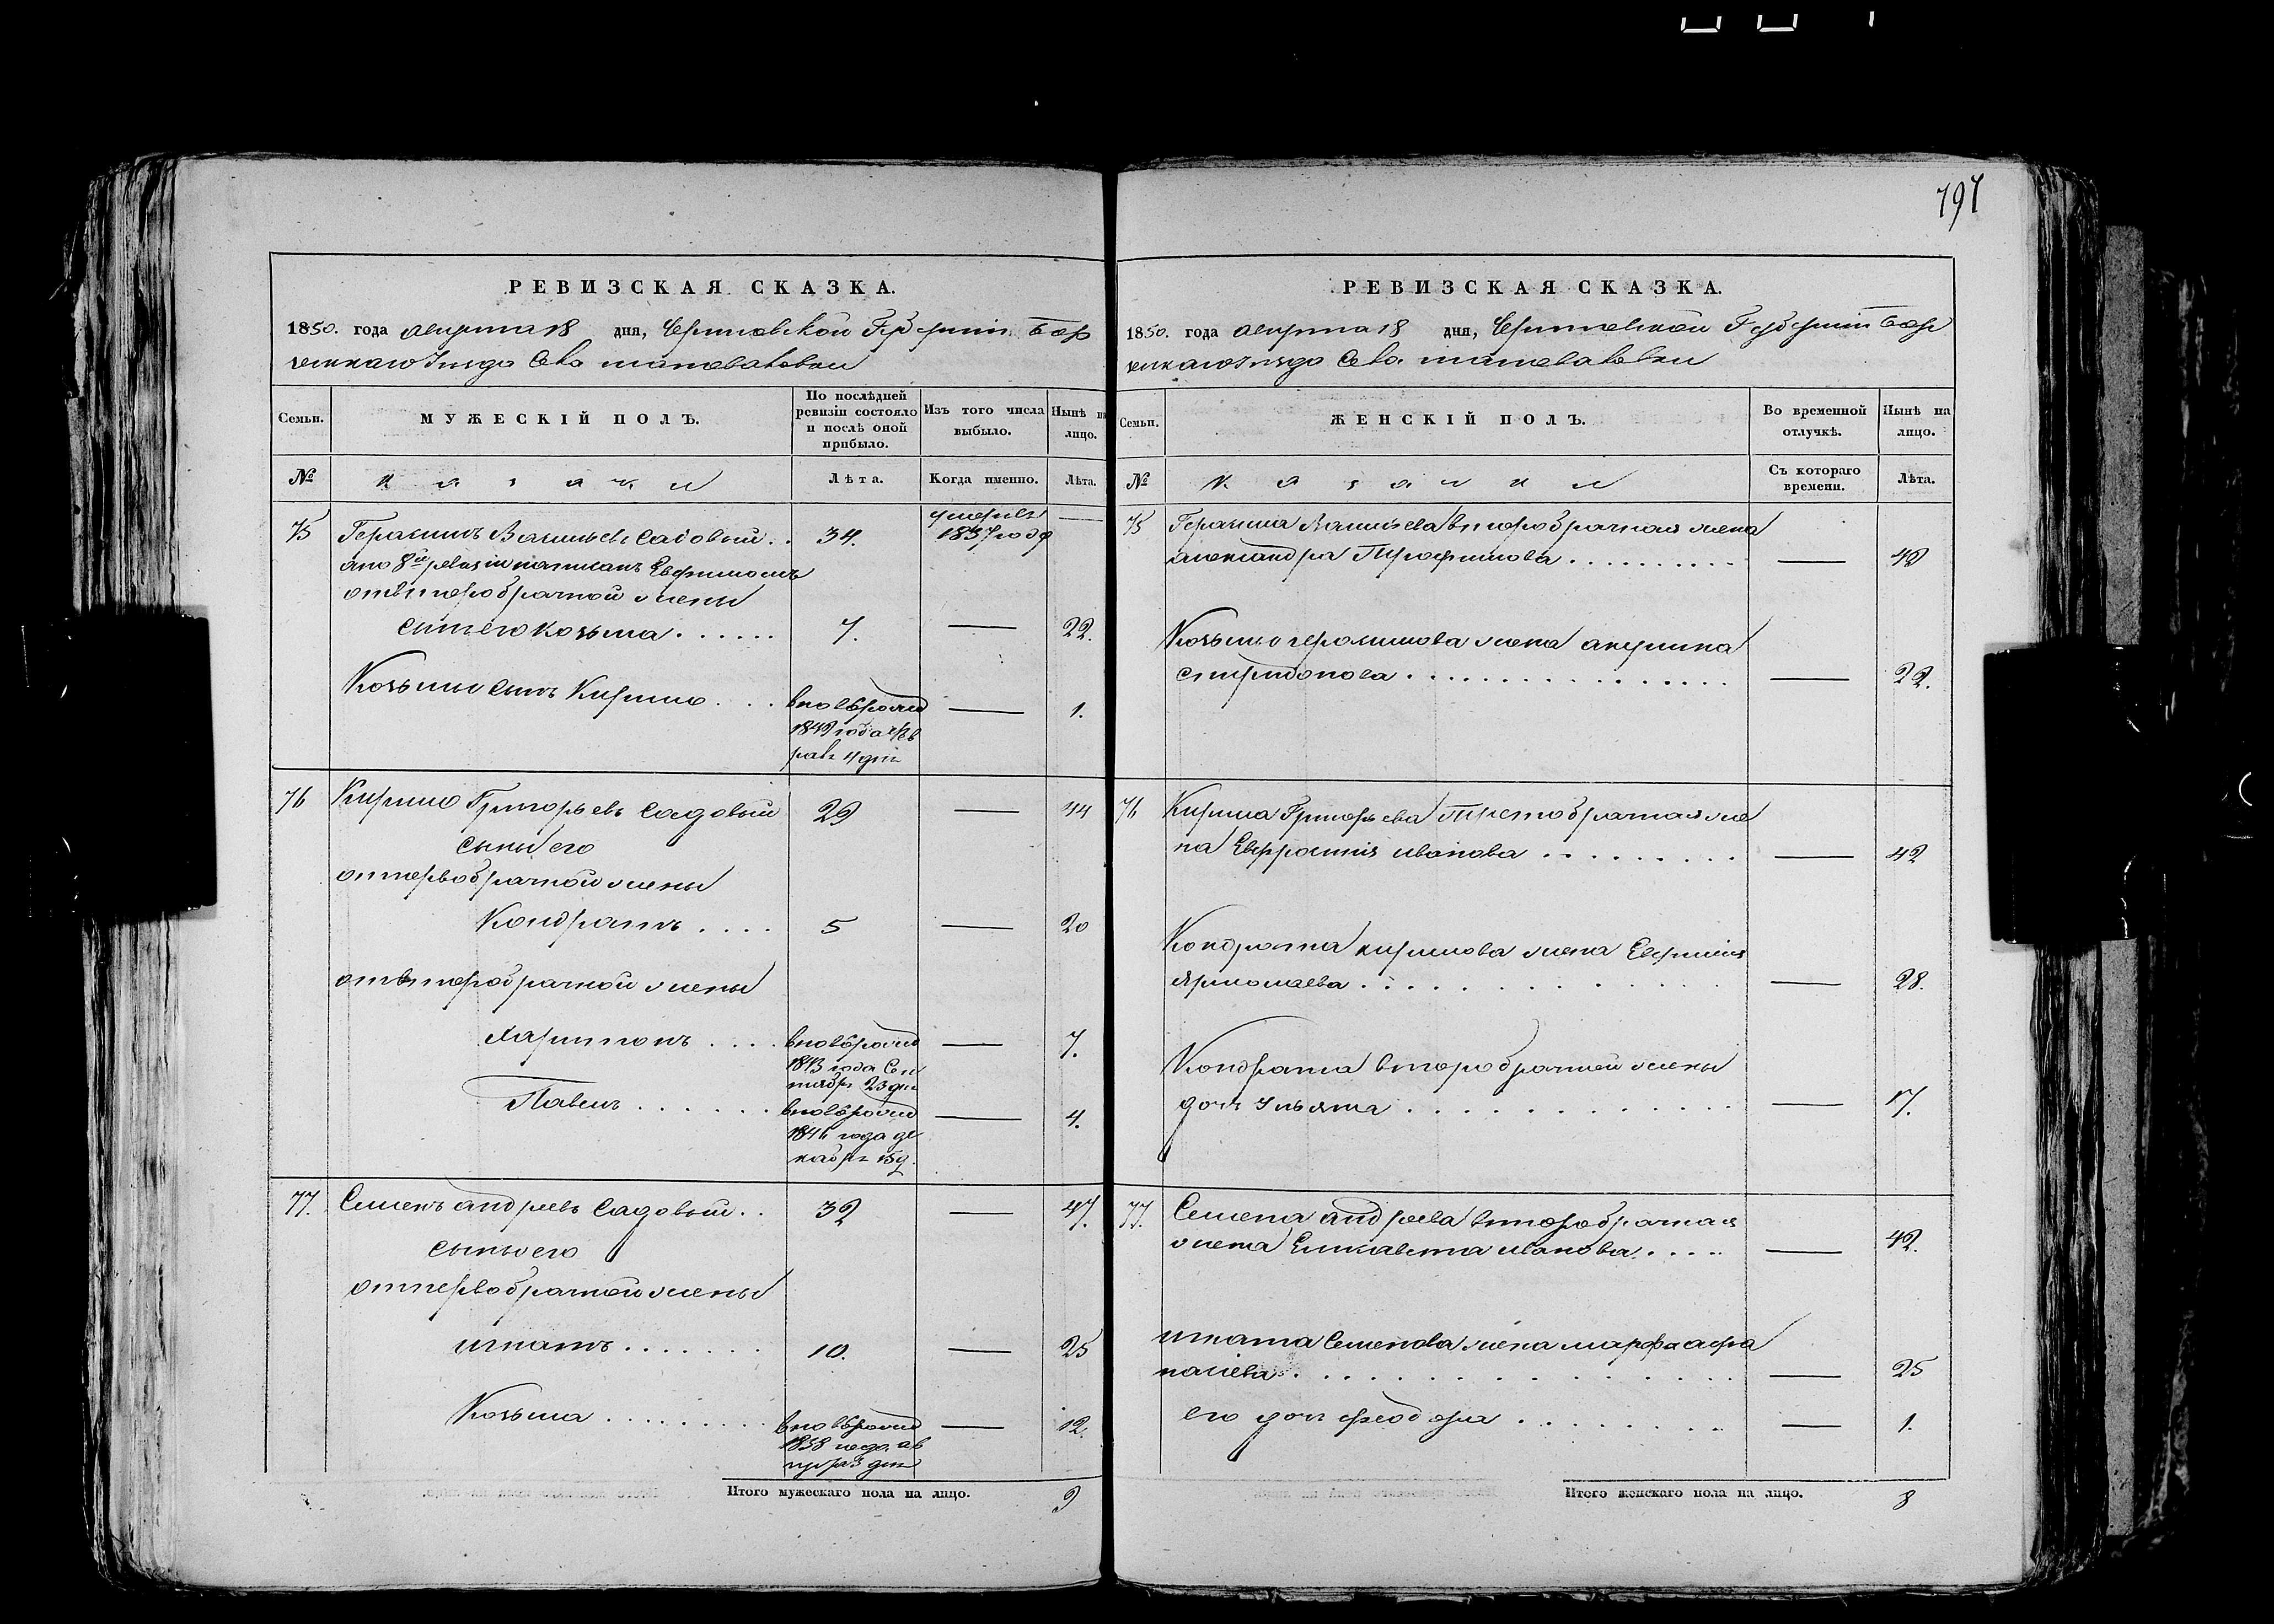 797
РЕВИЗСКАЯ СКАЗКА.
1850. года августа 18 дня, Черниговской Губерніи Бор
зенскаго Уѣзда Села
Семьи.
МУЖЕСКІЙ ПОЛЪ.
По послѣдней ревизіи состояло и послѣ оной прибыло.
Изъ того числа выбыло.
Нынѣ на лицо.
№
казаки
Лѣта.
Когда именно.
Лѣта.
75 Герасимъ Васильевъ Садовый . . 34. умеръ въ 1837 году —
а по 8й ревизіи написанъ Евфимомъ
отъ второбрачной жены
сынъ его Козьма . . . . . . 7. — 22.
Козьмы сынъ Кирило . . . . вновь рожд — 1.
1849 года Фев
раля 4 дня
76 Кирило Григорьевъ Садовый 29 — 44
сыны его
отъ первобрачной жены
Кондратъ . . . . 5 — 20
отъ второбрачной жены
Харитонъ . . . . вновь рожд — 7.
1843 года Сен
тября 23 дня
Павелъ . . . . . . вновь рожд — 4.
1846 года де
кабря 15 д.
77. Семенъ Андреевъ Садовый . . 32 — 47.
сыны его
отъ первобрачной жены
Игнатъ . . . . . . . 10. — 25
Козьма . . . . . . . . . вновь рожд — 12.
1838 года ав
густа дня
Итого мужескаго пола на лицо. 9
РЕВИЗСКАЯ СКАЗКА.
1850. года августа 18 дня, Черниговской Губерніи Бор
зенскаго Уѣзда Села
Семьи.
ЖЕНСКІЙ ПОЛЪ.
Во временной отлучкѣ.
Нынѣ на лицо.
№
казачки
Съ котораго времени.
Лѣта.
75 Герасима Васильева второбрачная жена
Александра Трофимова . . . . . . . . . . — 42
Козьмы Герасимова жена Акулина
Спиридонова . . . . . . . . . . . . . . . . — 22.
76 Кирила Григорьева третобрачная же
на Евфросинія Иванова . . . . . . . . . — 42
Кондрата Кирилова жена Евфимія
Ярмолаева . . . . . . . . . . . . . . — 28.
Кондрата второбрачной жены
дочь Ульяна . . . . . . . . . . . . . — 17.
77. Семена Андреева второбрачная
жена Елисавета Иванова . . . . — 42.
Игната Семенова жена Марфа Афа
насіева . . . . . . . . . . . . . . . . . — 25
его дочь Феодора . . . . . . . — 1.
Итого женскаго пола на лицо. 8